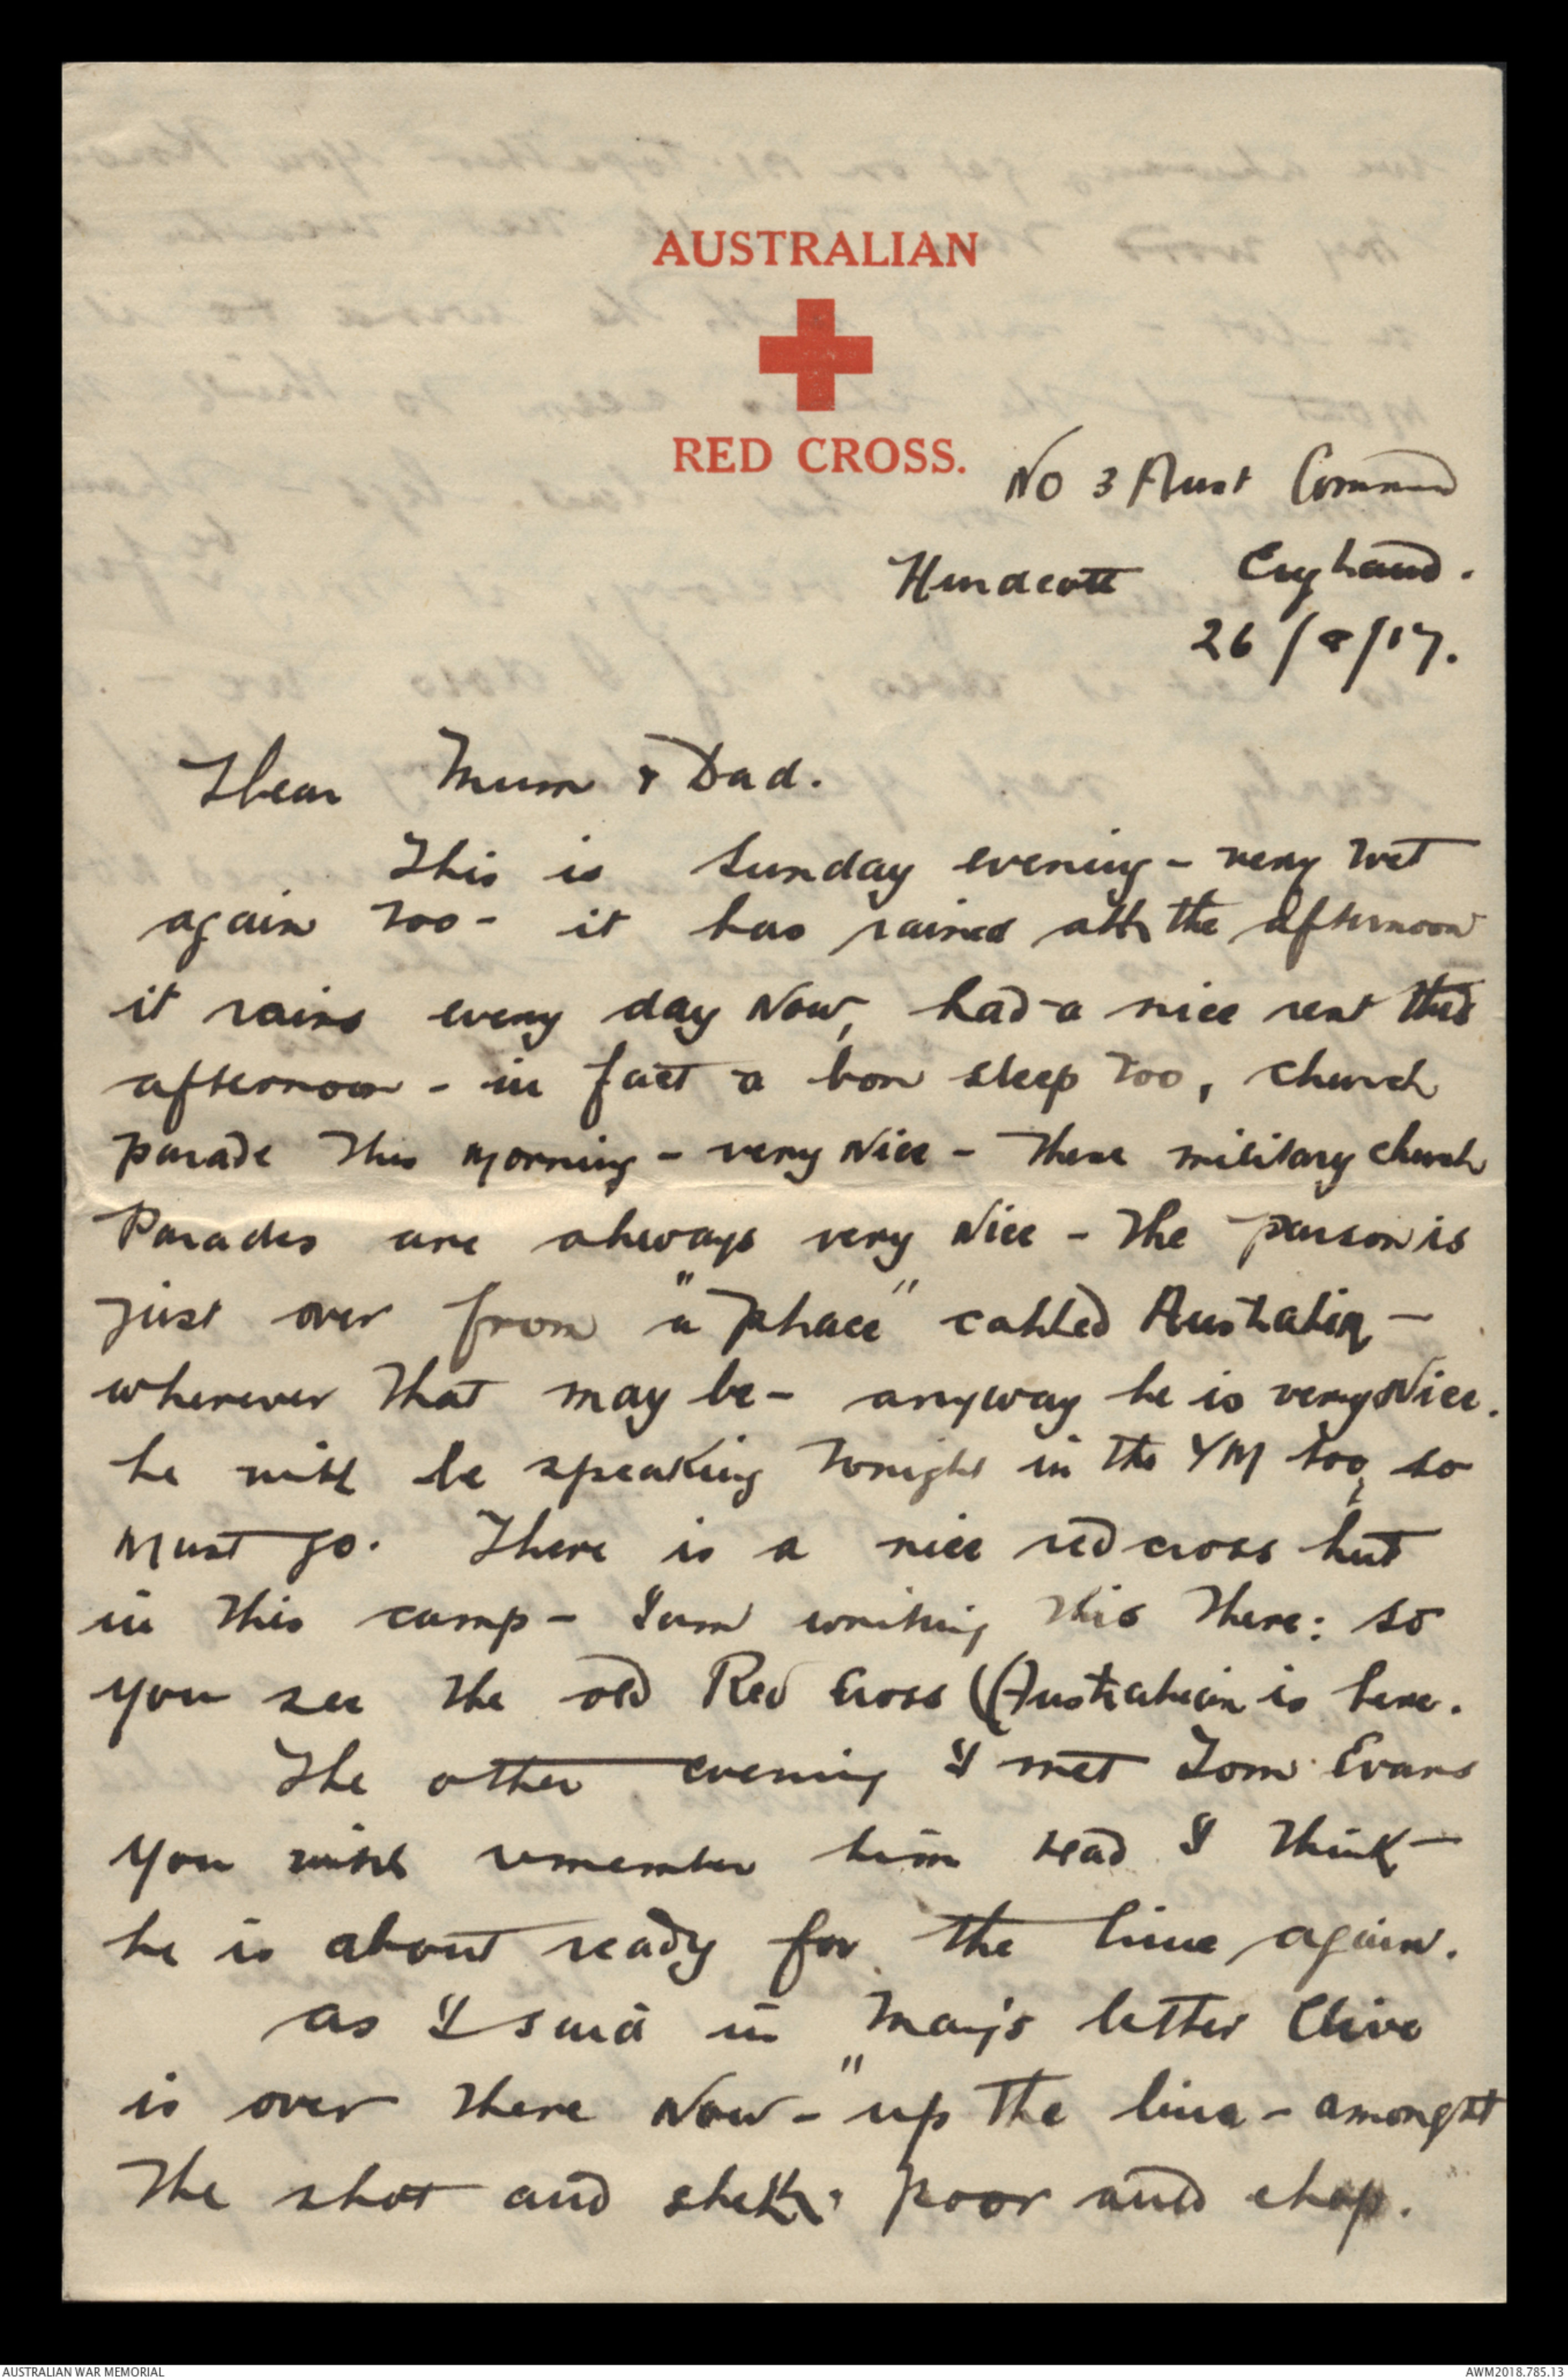 AUSTRALIAN
RED CROSS.
No 3 Aust Command
Hurdcott England.
26/8/17.
Dear Mum & Dad.
This is Sunday evening - very wet
again too - it has rained all the afternoon
it rains every day Now, had a nice rest this
afternoon - in fact a bon sleep too, church
parade this morning - very Nice - these military church
Parades are always very Nice - the parson is
just over from "a place" called Australia -
wherever that may be - anyway he is very Nice.
he will be speaking tonight in the YM too, so
must go. There is a nice red cross hut
in this camp - I am writing this there: so
you see the old Red Cross (Australian is here.
The other evening I met Tom Evans
you will remember him Dad I think -
he is about ready for the line again.
as I said in May's letter Clive
is over there Now - "up the line - amongst
the shot and shell, poor auld chap.
AUSTRALIAN WAR MEMORIAL
AWM2018.785.13